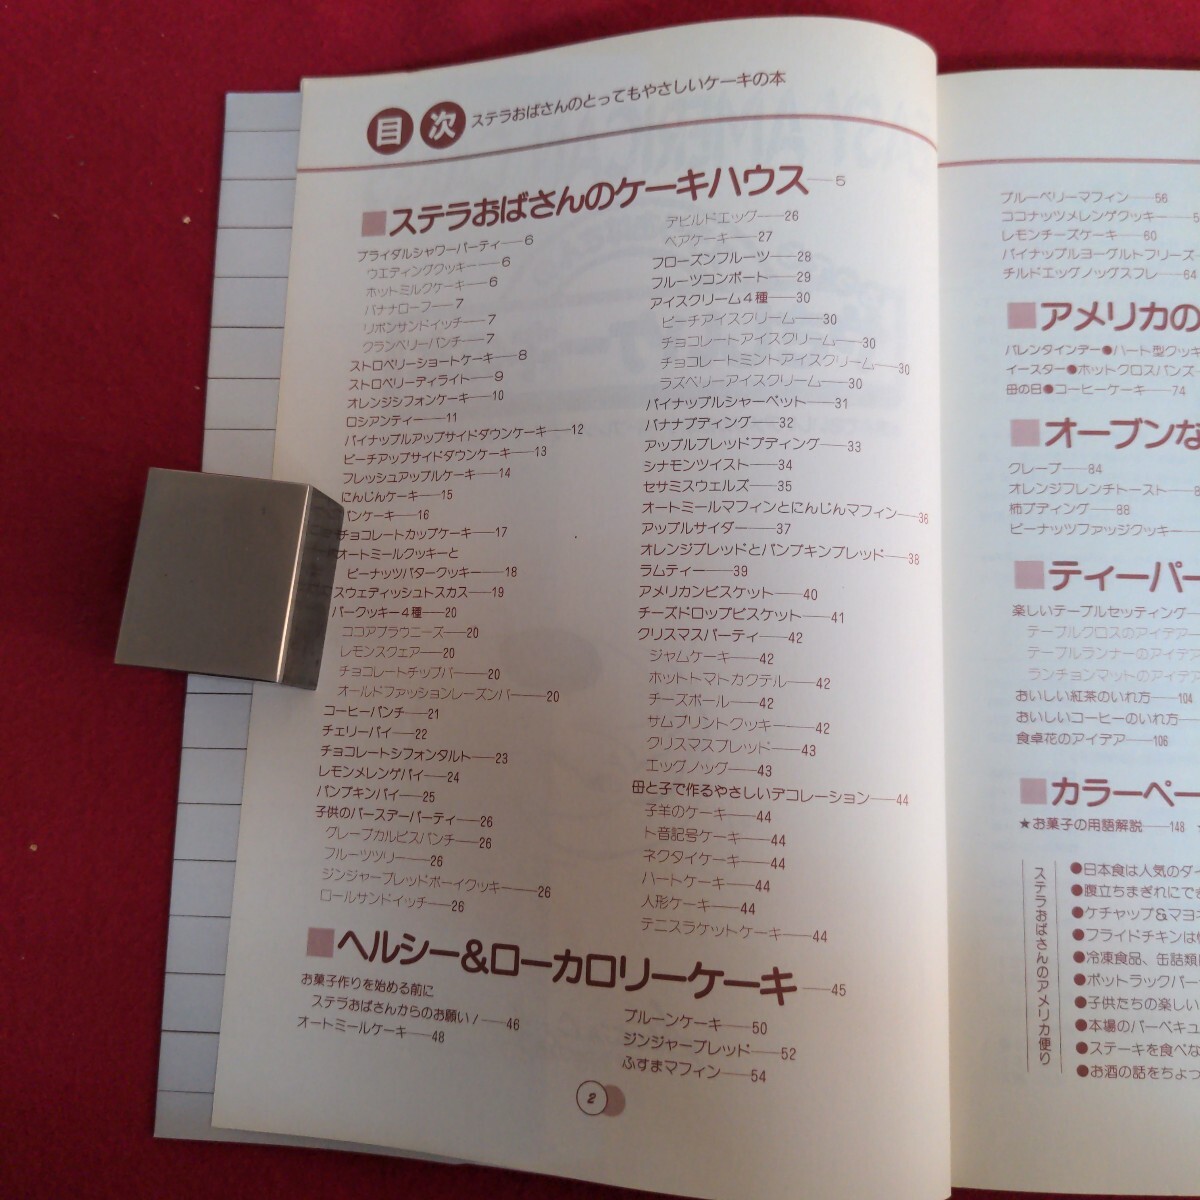 目次 ステラおばさんのとってもやさしいケーキの本
■ステラおばさんのケーキハウス——5
ブライダルシャワーパーティ——6
ウエディングクッキー——6
ホットミルクケーキ——6
バナナローフ——7
リボンサンドイッチ——7
クランベリーパンチ——7
ストロベリーショートケーキ——8
ストロベリーディライト——9
オレンジシフォンケーキ——10
ロシアンティー——11
パイナップルアップサイドダウンケーキ——12
ピーチアップサイドダウンケーキ——13
フレッシュアップルケーキ——14
にんじんケーキ——15
パンケーキ——16
チョコレートカップケーキ——17
オートミールクッキーと
ピーナッツバタークッキー——18
スウェディッシュトスカス——19
バークッキー4種——20
ココアブラウニーズ——20
レモンスクェア——20
チョコレートチップバー——20
オールドファッションレーズンバー——20
コーヒーパンチ——21
チェリーパイ——22
チョコレートシフォンタルト——23
レモンメレンゲパイ——24
パンプキンパイ——25
子供のバースデーパーティ——26
グレープカルピスパンチ——26
フルーツツリー——26
ジンジャーブレッドボーイクッキー——26
ロールサンドイッチ——26
デビルドエッグ——26
ペアケーキ——27
フローズンフルーツ——28
フルーツコンポート——29
アイスクリーム4種——30
ピーチアイスクリーム——30
チョコレートアイスクリーム——30
チョコレートミントアイスクリーム——30
ラズベリーアイスクリーム——30
パイナップルシャーベット——31
バナナプディング——32
アップルブレッドプディング——33
シナモンツイスト——34
セサミスウェルズ——35
オートミールマフィンとにんじんマフィン——36
アップルサイダー——37
オレンジブレッドとパンプキンブレッド——38
ラムティー——39
アメリカンビスケット——40
チーズドロップビスケット——41
クリスマスパーティ——42
ジャムケーキ——42
ホットトマトカクテル——42
チーズボール——42
サムプリントクッキー——42
クリスマスブレッド——43
エッグノッグ——43
母と子で作るやさしいデコレーション——44
子羊のケーキ——44
ト音記号ケーキ——44
ネクタイケーキ——44
ハートケーキ——44
人形ケーキ——44
テニスラケットケーキ——44
■ヘルシー&ローカロリーケーキ——45
お菓子作りを始める前に
ステラおばさんからのお願い!——46
オートミールケーキ——48
プルーンケーキ——50
ジンジャーブレッド——52
ふすまマフィン——54
2
ブルーベリーマフィン——56
ココナッツメレンゲクッキー——5
レモンチーズケーキ——60
パイナップルヨーグルトフリーズ—
チルドエッグノッグスフレ——64
■アメリカの
バレンタインデー●ハート型クッキ
イースター●ホットクロスバンズ—
母の日●コーヒーケーキ——74
■オーブンな
クレープ——84
オレンジフレンチトースト——8
柿プディング——88
ピーナッツファッジクッキー—
■ティーパー
楽しいテーブルセッティング—
テーブルクロスのアイデア—
テーブルランナーのアイデア
ランチョンマットのアイデア
おいしい紅茶のいれ方——104
おいしいコーヒーのいれ方—
食卓花のアイデア——106
■カラーペー
★お菓子の用語解説——148
ステラおばさんのアメリカ便り
●日本食は人気のダイ
●腹立ちまぎれにでき
●ケチャップ&マヨネ
●フライドチキンは
●冷凍食品、缶詰類
●ポットラックパー
●子供たちの楽しい
●本場のバーベキュ
●ステーキを食べな
●お酒の話をちょっ